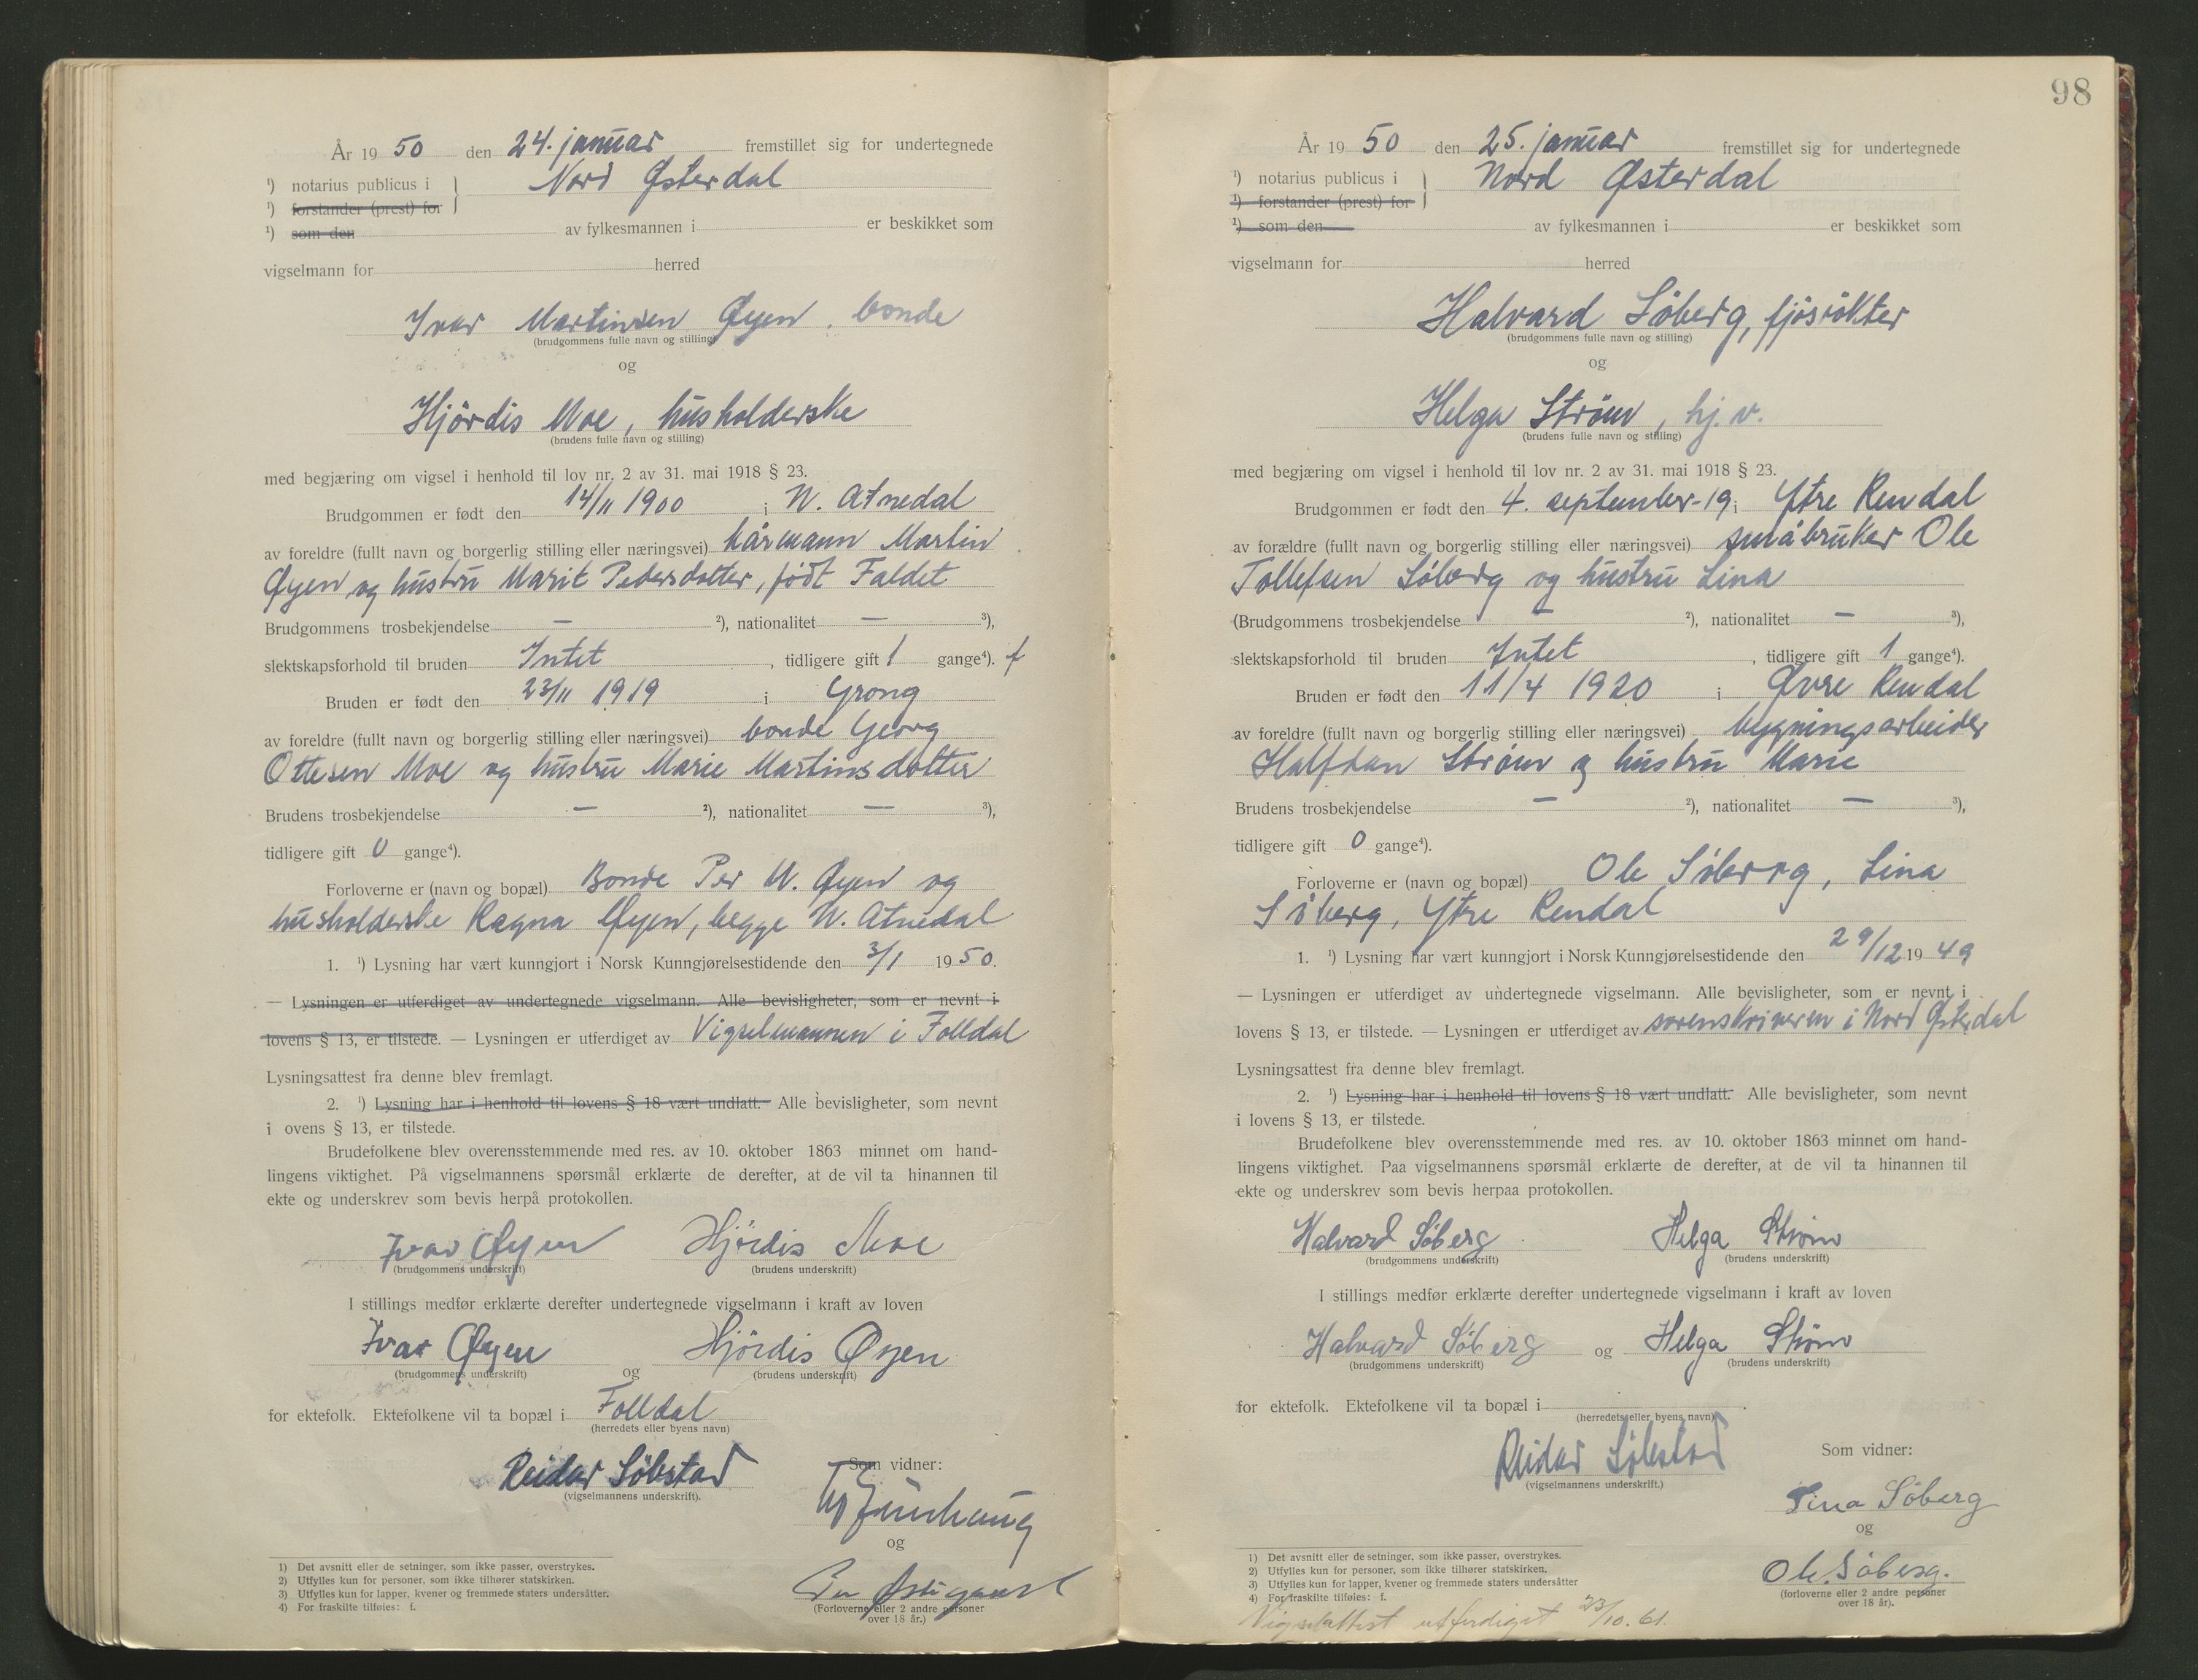 År 19 50 den 24. januar fremstillet sig for undertegnede
¹) notarius publicus i } Nord Østerdal
¹) forstander (prest) for
¹) som den av fylkesmannen i er beskikket som
vigselmann for herred
Ivar Martinsen Øyen, bonde
(brudgommens fulle navn og stilling)
og
Hjördis Moe, husholderske
(brudens fulle navn og stilling)
med begjæring om vigsel i henhold til lov nr. 2 av 31. mai 1918 § 23.
Brudgommen er født den 14/11 1900 i N. Atnedal
av foreldre (fullt navn og borgerlig stilling eller næringsvei) kårmann Martin
Øyen og hustru Marit Pedersdotter, født Faldet
Brudgommens trosbekjendelse — ²), nationalitet — ³),
slektskapsforhold til bruden Intet , tidligere gift 1 gange⁴). f
Bruden er født den 23/11 1919 i Grong
av foreldre (fullt navn og borgerlig stilling eller næringsvei) bonde Georg
Ottesen Moe og hustru Marie Martinsdotter
Brudens trosbekjendelse — ²), nationalitet — ³),
tidligere gift 0 gange⁴).
Forloverne er (navn og bopæl) Bonde Per M. Øyen og
husholderske Ragna Øyen, begge N. Atnedal
1. ¹) Lysning har vært kunngjort i Norsk Kunngjørelsestidende den 3/1 1950.
— Lysningen er utferdiget av undertegnede vigselmann. Alle bevisligheter, som er nevnt i
lovens § 13, er tilstede. — Lysningen er utferdiget av Vigselmannen i Folldal
Lysningsattest fra denne blev fremlagt.
2. ¹) Lysning har i henhold til lovens § 18 vært undlatt. Alle bevisligheter, som nevnt
i ovens § 13, er tilstede.
Brudefolkene blev overensstemmende med res. av 10. oktober 1863 minnet om hand-
lingens viktighet. På vigselmannens spørsmål erklærte de derefter, at de vil ta hinannen til
ekte og underskrev som bevis herpå protokollen.
Ivar Øyen Hjördis Moe
(brudgommens underskrift) (brudens underskrift)
I stillings medfør erklærte derefter undertegnede vigselmann i kraft av loven
Ivar Øyen Hjördis Øyen
(brudgommens underskrift) og (brudens underskrift)
for ektefolk. Ektefolkene vil ta bopæl i Folldal
(herredets eller byens navn)
Reidar Söbstad Som vidner:
(vigselmannens underskrift).
og
(Forloverne eller 2 andre personer
over 18 år.)
1) Det avsnitt eller de setninger, som ikke passer, overstrykes.
2) Utfylles kun for personer, som ikke tilhører statskirken.
3) Utfylles kun for lapper, kvener og fremmede staters undersåtter.
4) For fraskilte tilføies: f.
98
År 19 50 den 25. januar fremstillet sig for undertegnede
¹) notarius publicus i } Nord Østerdal
¹) forstander (prest) for
¹) som den av fylkesmannen i er beskikket som
vigselmann for herred
Halvard Söberg, fjösrökter
(brudgommens fulle navn og stilling)
og
Helga Ström, hj. v.
(brudens fulle navn og stilling)
med begjæring om vigsel i henhold til lov nr. 2 av 31. mai 1918 § 23.
Brudgommen er født den 4. september -19 i Ytre Rendal
av forældre (fullt navn og borgerlig stilling eller næringsvei) småbruker Ole
Tollefsen Söberg og hustru Lina
(Brudgommens trosbekjendelse — ²), nationalitet — ³),
slektskapsforhold til bruden Intet , tidligere gift 1 gange⁴).
Bruden er født den 11/4 1920 i Øvre Rendal
av foreldre (fullt navn og borgerlig stilling eller næringsvei) bygningsarbeider
Halfdan Ström og hustru Marie
Brudens trosbekjendelse — ²), nationalitet — ³),
tidligere gift 0 gange⁴).
Forloverne er (navn og bopæl) Ole Söberg, Lina
Söberg, Ytre Rendal
1. ¹) Lysning har vært kunngjort i Norsk Kunngjørelsestidende den 29/12 19 49
— Lysningen er utferdiget av undertegnede vigselmann. Alle bevisligheter, som er nevnt i
lovens § 13, er tilstede. — Lysningen er utferdiget av sorenskriveren i Nord Østerdal
Lysningsattest fra denne blev fremlagt.
2. ¹) Lysning har i henhold til lovens § 18 vært undlatt. Alle bevisligheter, som nevnt
i lovens § 13, er tilstede.
Brudefolkene blev overensstemmende med res. av 10. oktober 1863 minnet om hand-
lingens viktighet. Paa vigselmannens spørsmål erklærte de derefter, at de vil ta hinannen til
ekte og underskrev som bevis herpaa protokollen.
Halvard Söberg Helga Ström
(brudgommens underskrift) (brudens underskrift)
I stillings medfør erklærte derefter undertegnede vigselmann i kraft av loven
Halvard Söberg og Helga Ström
(brudgommens underskrift) (brudens underskrift)
for ektefolk. Ektefolkene vil ta bopæl i
(herredets eller byens navn)
Reidar Söbstad Som vidner:
(vigselmannens underskrift.)
Lina Söberg
og
Ole Söberg.
(forloverne eller 2 andre personer
over 18 år).
1) Det avsnitt eller de setninger, som ikke passer, overstrykes.
2) Utfylles kun for personer, som ikke tilhører statskirken.
3) Utfylles kun for lapper, kvener og fremmede staters undersåtter
4) For fraskilte tilføies: f.
Vigselattest utferdiget 23/10. 61.